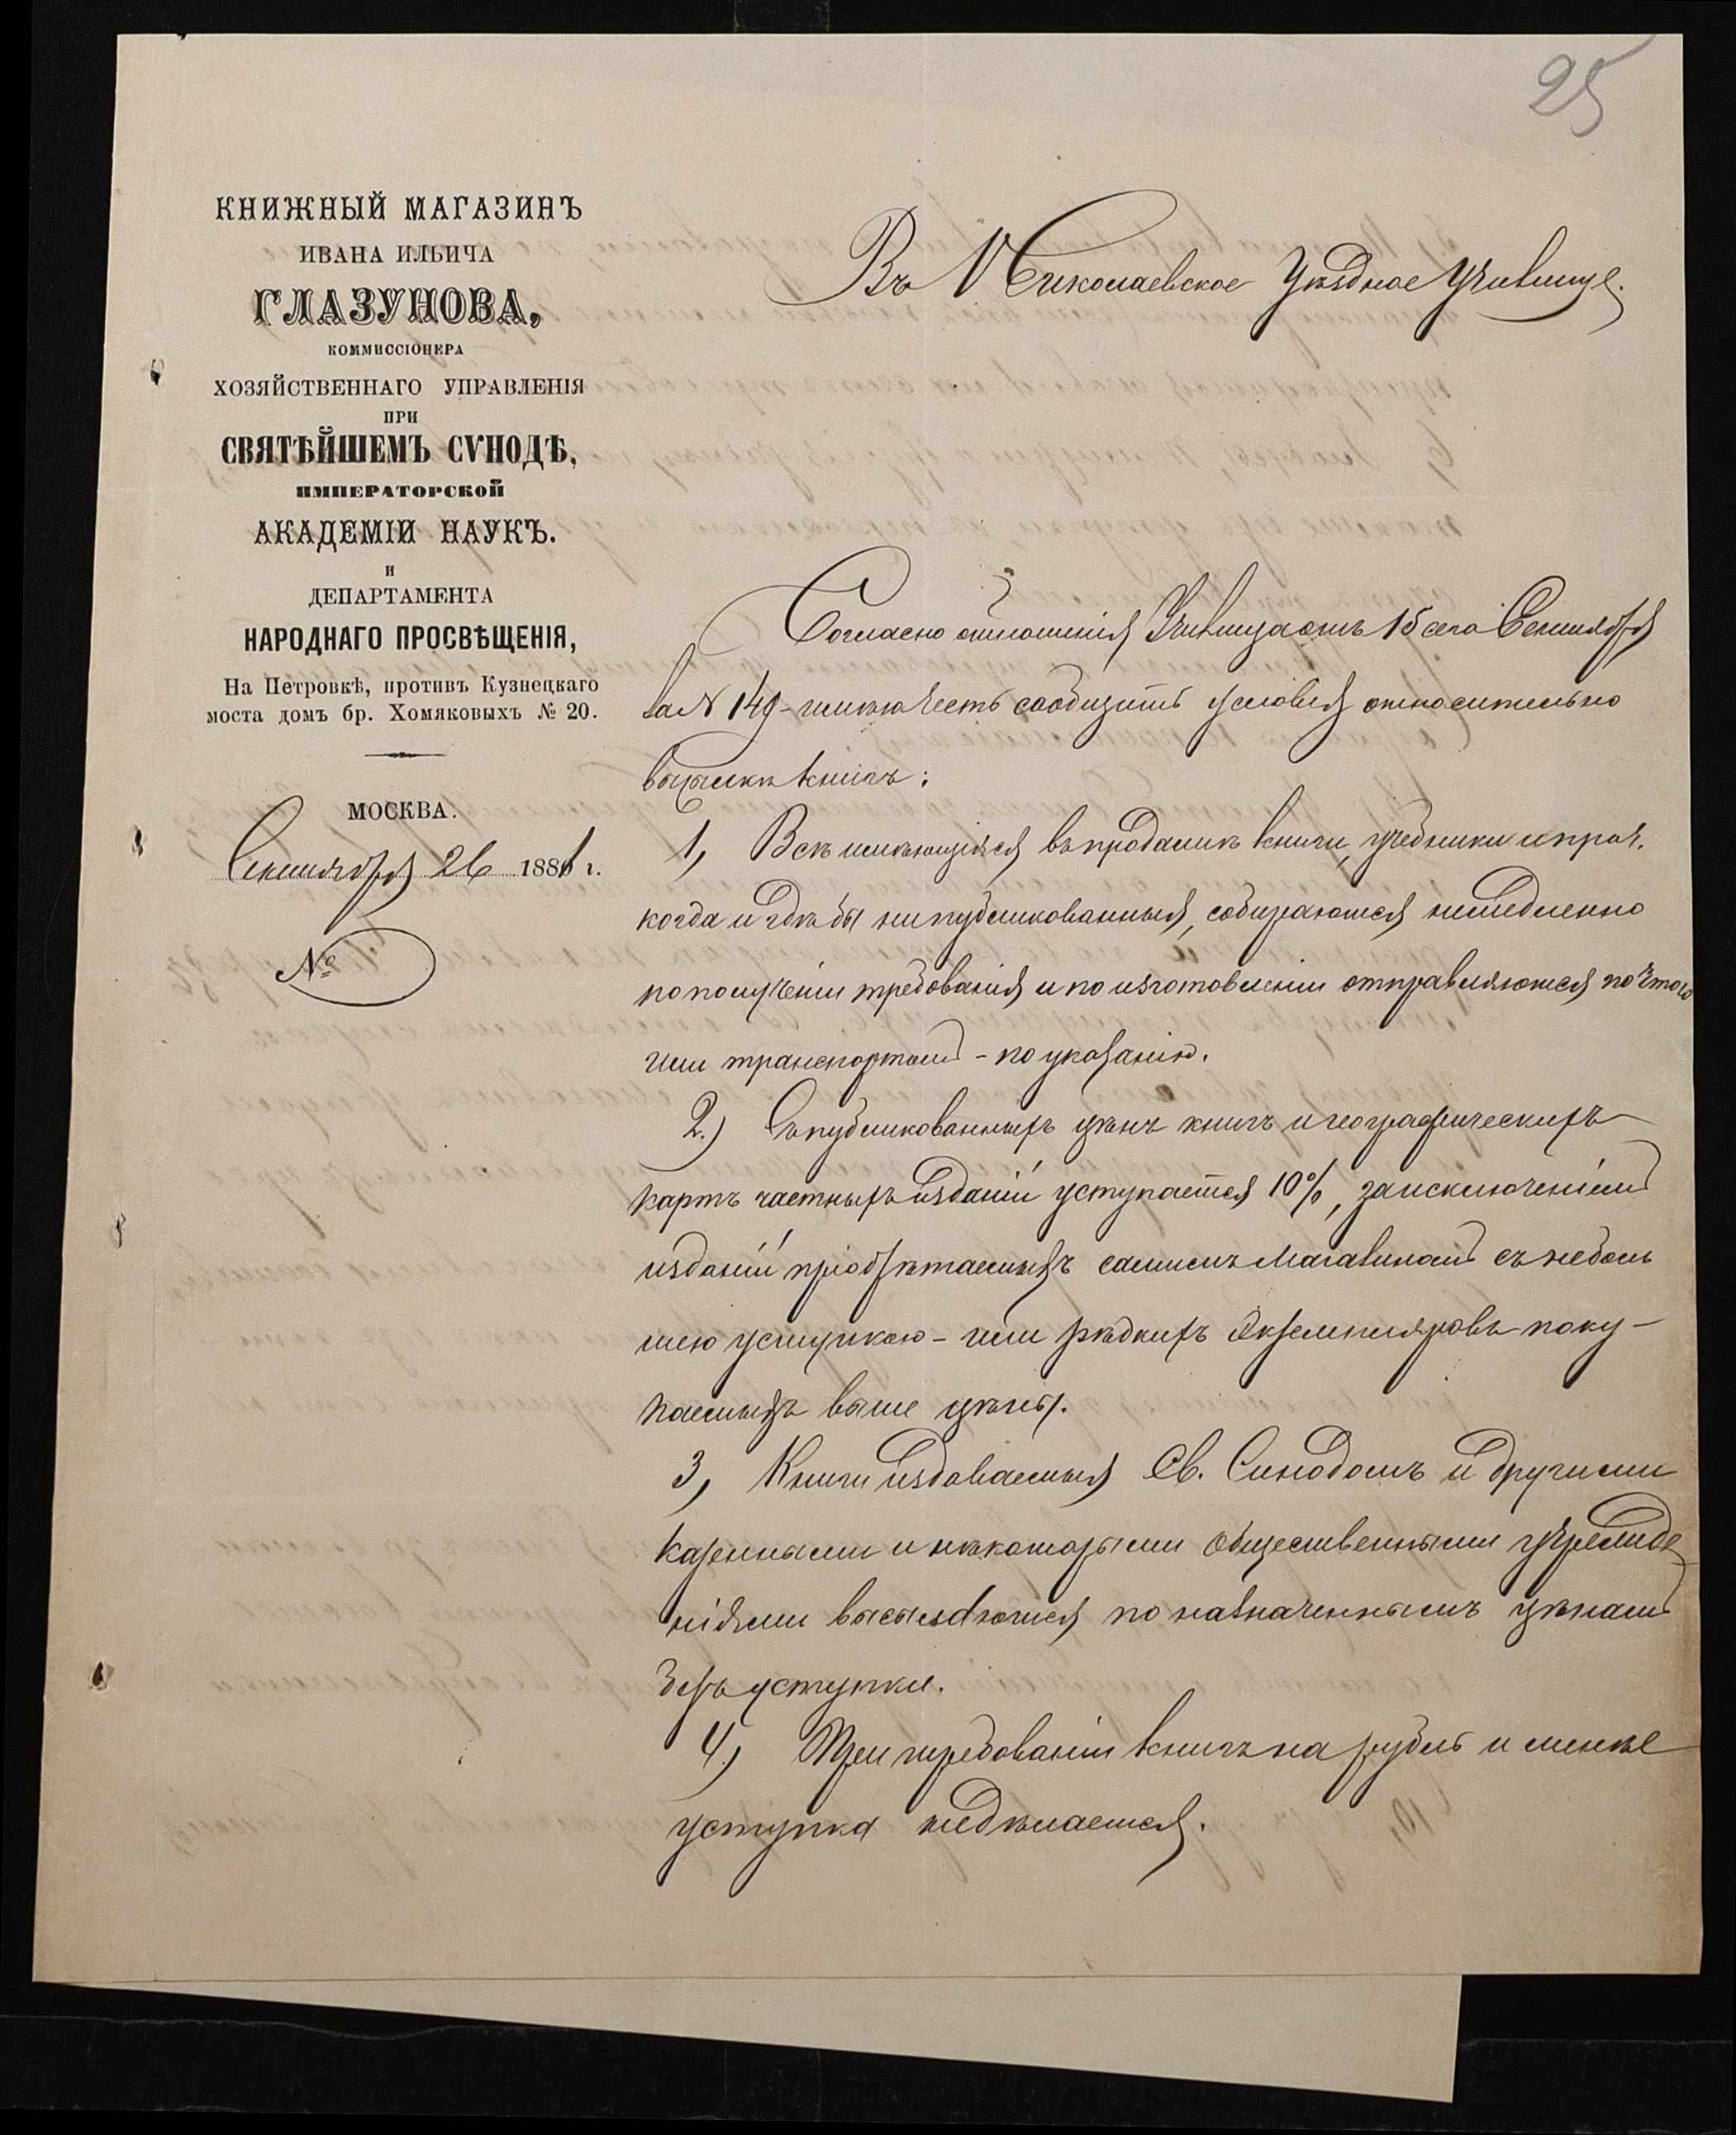 25
КНИЖНЫЙ МАГАЗИНЪ
ИВАНА ИЛЬИЧА
ГЛАЗУНОВА,
КОММИССІОНЕРА
ХОЗЯЙСТВЕННАГО УПРАВЛЕНІЯ
ПРИ
СВЯТѢЙШЕМЪ СѴНОДѢ,
ИМПЕРАТОРСКОЙ
АКАДЕМІИ НАУКЪ.
И
ДЕПАРТАМЕНТА
НАРОДНАГО ПРОСВѢЩЕНІЯ,
На Петровкѣ, противъ Кузнецкаго
моста домъ бр. Хомяковыхъ № 20.
МОСКВА.
Сентября 26 1881 г.
№
Въ Николаевское Уѣздное Училище.
Согласно отношенія Училища отъ 15 сего Сентября
за № 149 - имѣю честь сообщить условія относительно
высылки книгъ:
1, Всѣ имѣющіяся въ продажѣ книги, учебники и проч.
когда и гдѣ бы ни публикованныя, собираются немедленно
по полученіи требованія и по изготовленіи отправляются почтою
или транспортомъ - по указанію.
2.) Съ публикованныхъ цѣнъ книгъ и географическихъ
картъ частныхъ изданій уступается 10%, за исключеніемъ
изданій пріобрѣтаемыхъ самимъ Магазиномъ съ неболь
шею уступкою - или рѣдкихъ экземпляровъ поку-
паемыхъ выше цѣны.
3, Книги издаваемыя Св. Синодомъ и другими
казенными и нѣкоторыми общественными учрежде
ніями высылаются по назначеннымъ цѣнамъ
безъ уступки.
4.) При требованіи книгъ на рубль и менѣе
уступка не дѣлается.